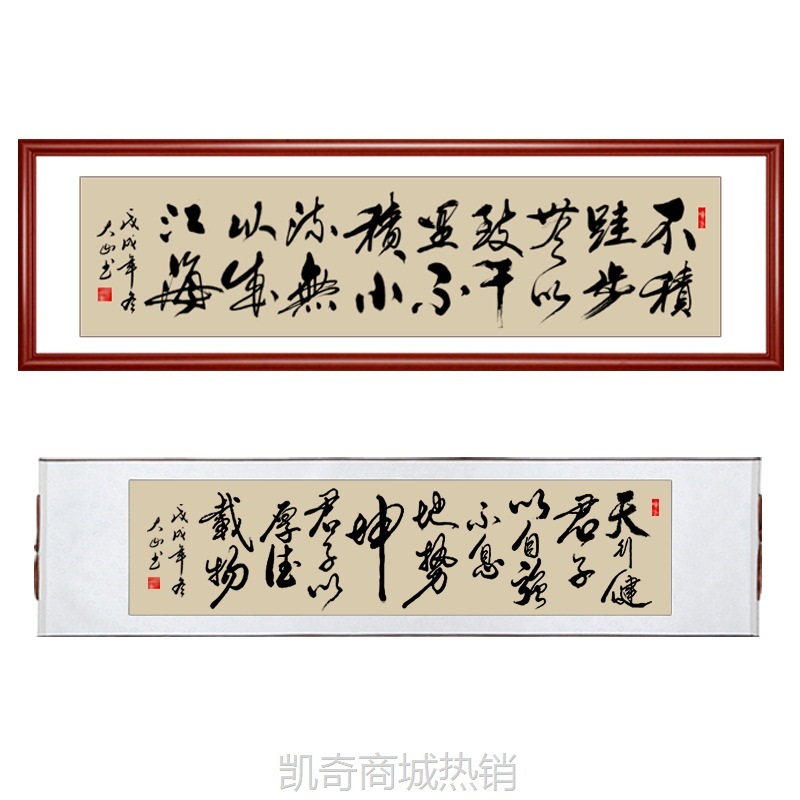 不積
跬步
無以
致千
里不
積小
流無
以成
江海
戊戌年冬
大山书
天行健
君子
以自強
不息
地勢
坤
君子以
厚德
載物
戊戌年冬
大山书
凯奇商城热销